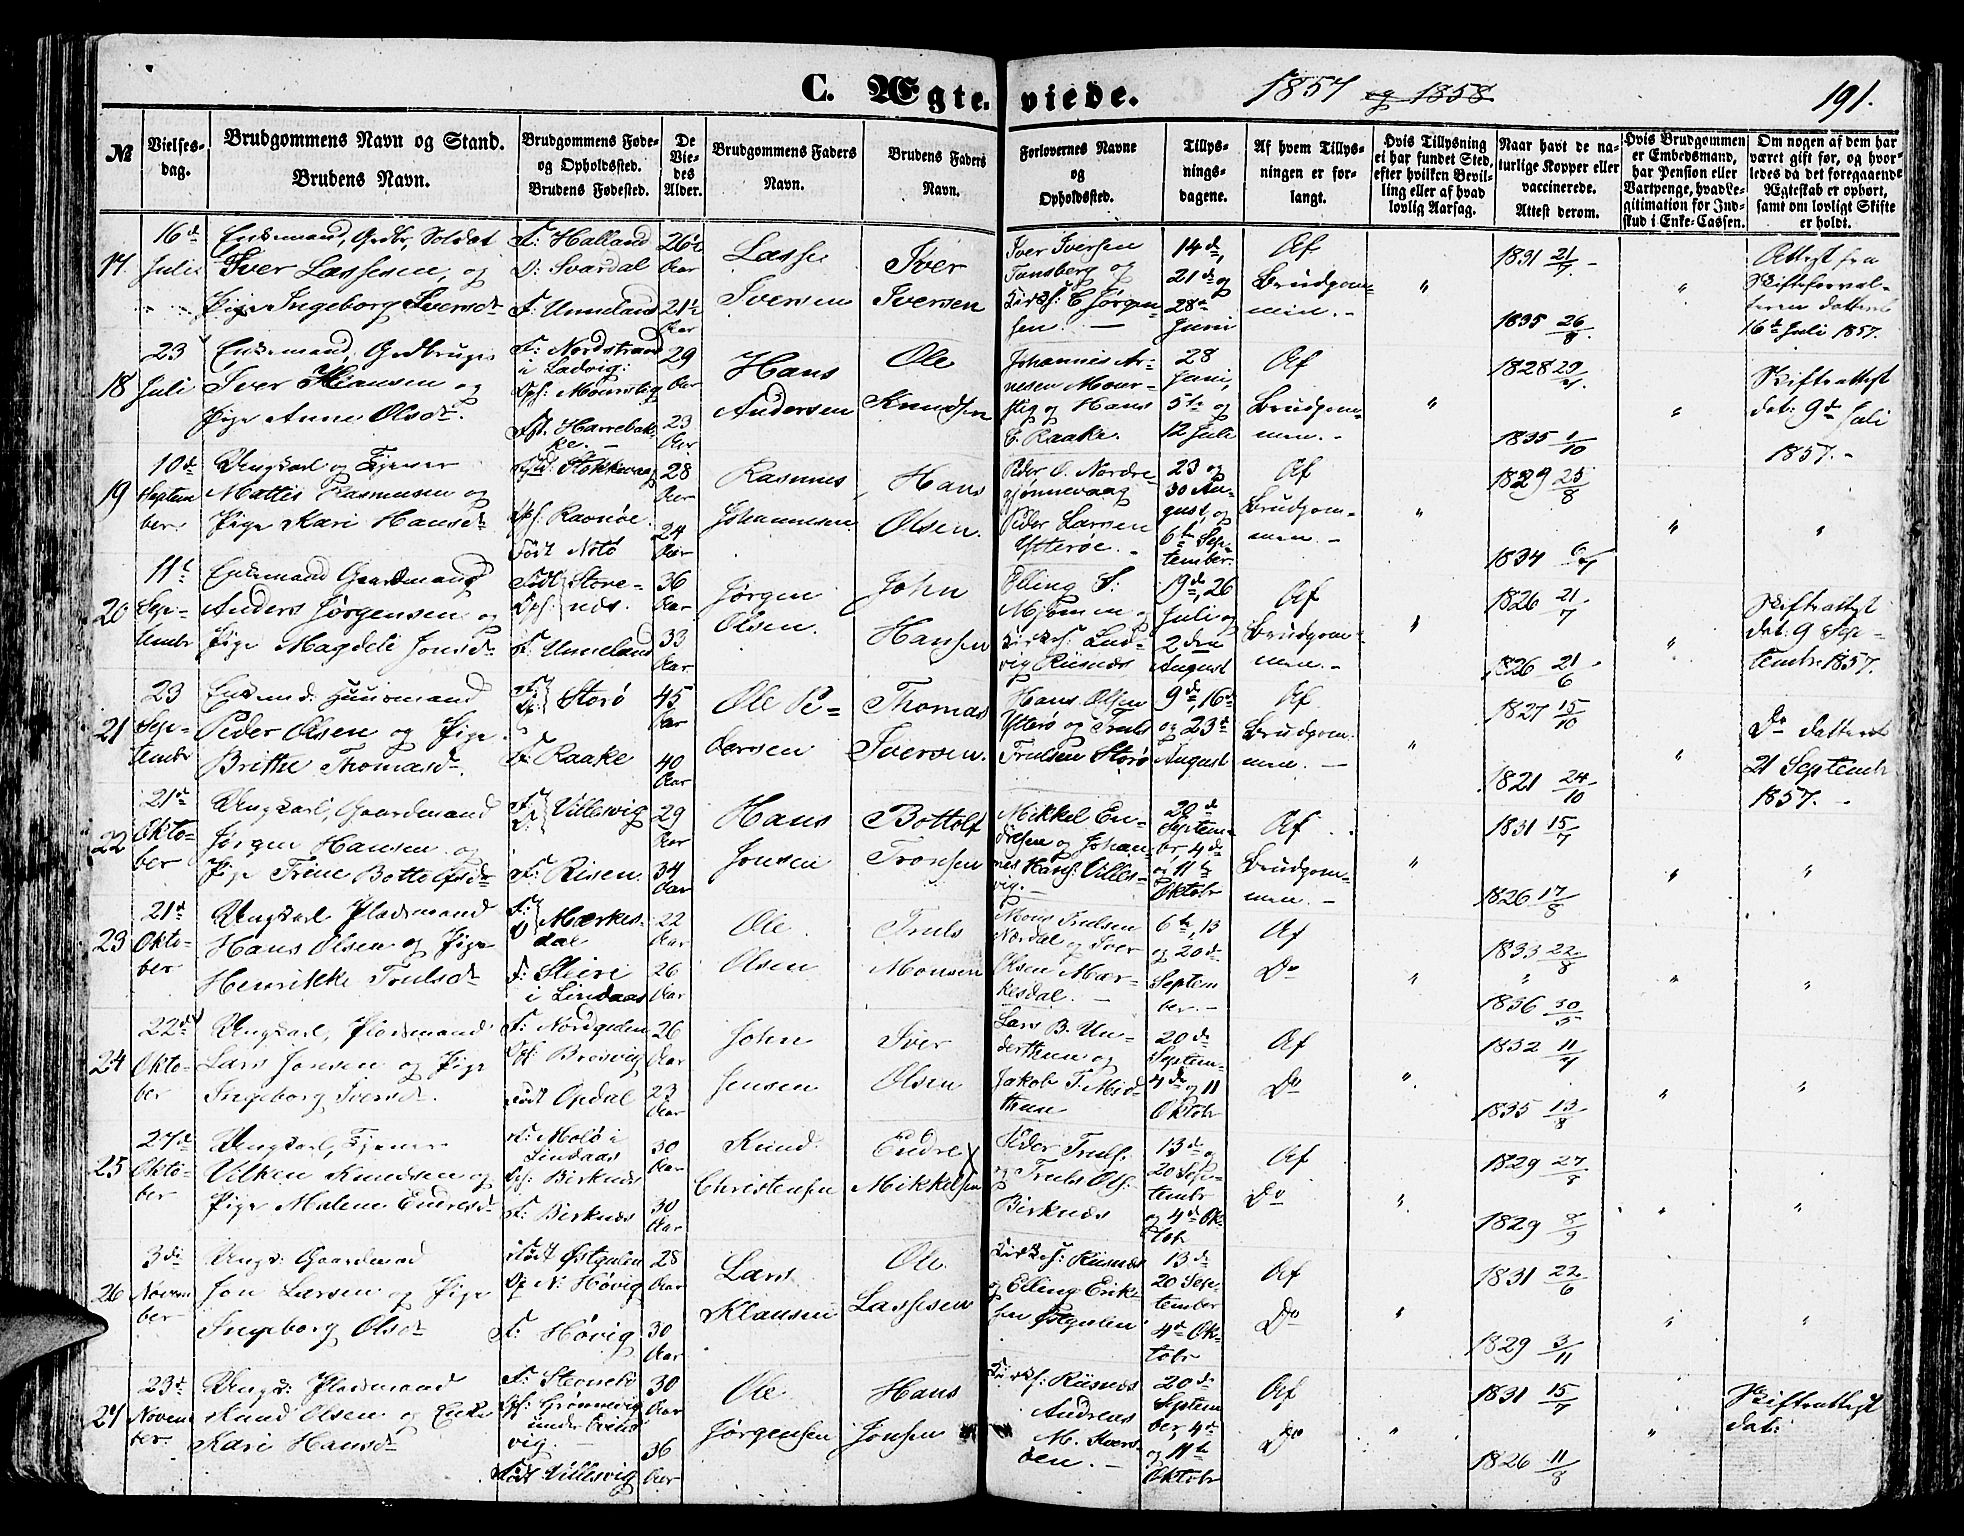 C. Ægteviede. 1857 og 1858 191.
№
Vielsesdag.
Brudgommens Navn og Stand.
Brudens Navn.
Brudgommens Føde- og Opholdssted.
Brudens Fødested.
De Viedes Alder.
Brudgommens Faders Navn.
Brudens Faders Navn.
Forlovernes Navne og Opholdssted.
Tillysningsdagene.
Af hvem Tillysningen er forlangt.
Hvis Tillysning ei har fundet Sted, efter hvilken Bevilling eller af hvad lovlig Aarsag.
Naar havt de naturlige Kopper eller vaccinerede.
Attest derom.
Hvis Brudgommen er Embedsmand, har Pension eller Vartpenge, hvad Legitimation for Indskud i Enke-Cassen.
Om nogen af dem har været gift før, og hvorledes da det foregaaende Ægteskab er ophørt, samt om lovligt Skifte er holdt.
17 16de Juli
Enkemand, Gdbr, Soldat Iver Lassesen og Pige Ingeborg Iversdr
F: Halland O: Svardal F: Unneland
26½ Aar 21½ Aar
Lasse Iversen
Iver Iversen
Iver Iversen Tansberg og Kirkes: C Jørgensen. —
14de, 21de og 28de Juni
Af Brudgommen. -
"
1831 21/7 - 1835 26/8
"
Attest fra Skifteforvalteren datteret 16de Juli 1857.
18 23 Juli
Enkemand, Gdbruger Iver Hansen og Pige Anne Olsdr
F: Nordstrand i Ladvig: Oph: Mourstig Fød. Harrebakke. -
29 Aar 23 Aar
Hans Andersen
Ole Knudsen
Johannes Arnesen Mourstig og Hans C. Raake.
28 Juni, 5te og 12 Juli
Af Brudgommen. -
"
1828 1835 1/10
"
Skifteattest dat: 9de Juli 1857. -
19 10de September
Ungkarl og Tjener Mattis Rasmusen og Pige Kari Hansdr
Fød: Stokkevaag Oph. Ravnøe. Født Notø
28 Aar 24 Aar
Rasmus Johannesen
Hans Olsen.
Peder O. Nordregjønnevaag Peder Larsen Ytterøe. -
23 og 30 August, og 6te September
Af Brudgommen. -
"
1829 25/8 1834
"
"
20 11te September
Enkemand Gaardmand Anders Jørgensen og Pige Magdeli Jonsdr
Født Oph: Storenes. F: Unneland
36 Aar 33 Aar
Jørgen Olsen.
John Hansen
Elling S: Mjømen og Kirkes: Ludvig Riisnæs
19de, 26 Juli og 2den August
Af Brudgommen. -
"
1826 21/7 1826 21/6
"
Skifteattest dat: 9 September 1857.
21 23 September
Enkemd: Huusmand Peder Olsen og Pige Brithe Thomasdr.
F: O: Storø F: Raake
45 Aar 40 Aar
Ole Pedersen
Thomas Iversen.
Hans Olsen Ytterø og Truls Trulsen Storø
9de, 16de og 23de August
Af Brudgommen. -
"
1827 15/10 1821 24/10
"
Do datteret 21 September 1857. -
22 21de Oktober
Ungkarl, Gaardmand Jørgen Hansen og Pige Trine Bottolfsdr
F: O: Villesvig F: Risen.
29 Aar 34 Aar
Hans Jonsen
Bottolf Tronsen
Mikkel Endresen og Johannes Hans: Villesvig. -
20de September, 4de og 11te Oktobr
Af Brudgommen. -
"
1831 15/7 1826 17/8
"
"
23 21de Oktober
Ungkarl Pladsmand Hans Olsen og Pige Henrikke Trulsdr
F: O: Mærkesdal F: Steire i Lindaas
22 Aar 26 Aar
Ole Olsen
Truls Monsen
Mons Trulsen Nordal og Iver Olsen Mærkesdal. -
6te, 13 og 20de September. -
Af Do
"
1833 22/8 1836 30/5
"
"
24 22de Oktober
Ungkarl, Pladsmand Lars Jonsen og Pige Ingeborg Iversdr.
F: Nordgulen Oph: Brosvig Født Opdal
26 Aar 23 Aar
John Jensen
Iver Olsen
Lars B. Underthun og Jakob T. Midthun
20de September 4de og 11 Oktobr
Af Do
"
1832 1835 13/8
"
"
25 27de Oktober
Ungkarl, Tjener Vilken Knudsen og Pige Malene Endresdr
F: Molø i Lindaas Oph: Birknæs F: Birknæs
30 Aar 30 Aar
Knud Christensen
Endre Mikkelsen
Peder Truls. og Truls Ols. Birknæs
13de og 20 September og 4de Oktobr
Af Do
"
1829 27/8 1829 8/9
"
"
26 3die November
Ungk: Gaardmand Jon Larsen og Pige Ingeborg Olsdr
Født Østgulen Op N: Høvig F: Høvig
28 Aar 30 Aar
Lars Klausen
Ole Lassesen
Kirkes: Riisnæs og Elling Eriksen Østgulen
13de 20 September 4de Oktobr
Af Do
"
1831 22/6 1829 3/11
"
"
27 23de November.
Ungk: Pladsmand Knud Olsen og Enke Kari Hansdr
F: Steensø Oph: Grønnevig under Eivindvig. — Født Villesvig
30 Aar 36 Aar
Ole Jørgensen
Hans Jonsen
Kirkes: Riisnæs Andreas M. Kversøen. -
20de September, 4de og 11te Oktobr
Af Do
"
1831 15/7 1826 11/8
"
Skifteattest dat: